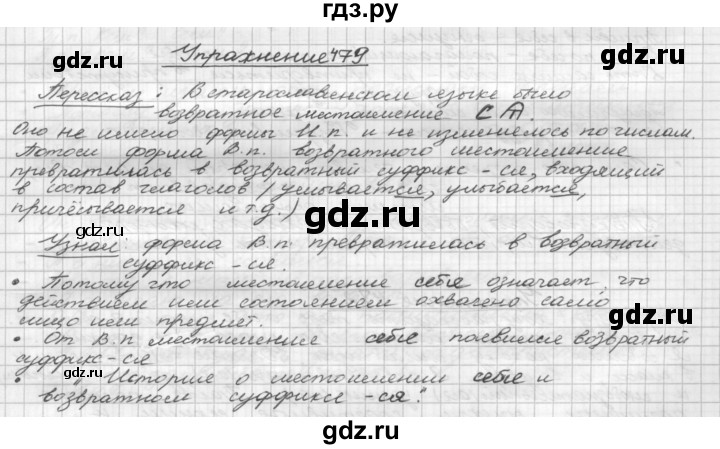 гдз.ру
Упражнение 479
Перессказ: В старославянском языке было
возвратное местоимение СѦ.
Оно не имело формы И.п. и не изменялось по числам.
Потом форма В.п. возвратного местоимения
превратилась в возвратный суффикс -ся, входящий
в состав глаголов (умывается, улыбается,
причёсывается и т.д.)
gdz.ru
Узнал: форма В.п превратилась в возвратный
суффикс -ся.
• Потому что местоимение себя означает, что
действием или состоянием охвачено само
лицо или предмет.
gdz.ru
• От В.п местоимения себя появился возвратный
суффикс -ся
gdz.ru
• "История о местоимении себя и
возвратном суффиксе -ся".
gdz.ru
gdz.ru